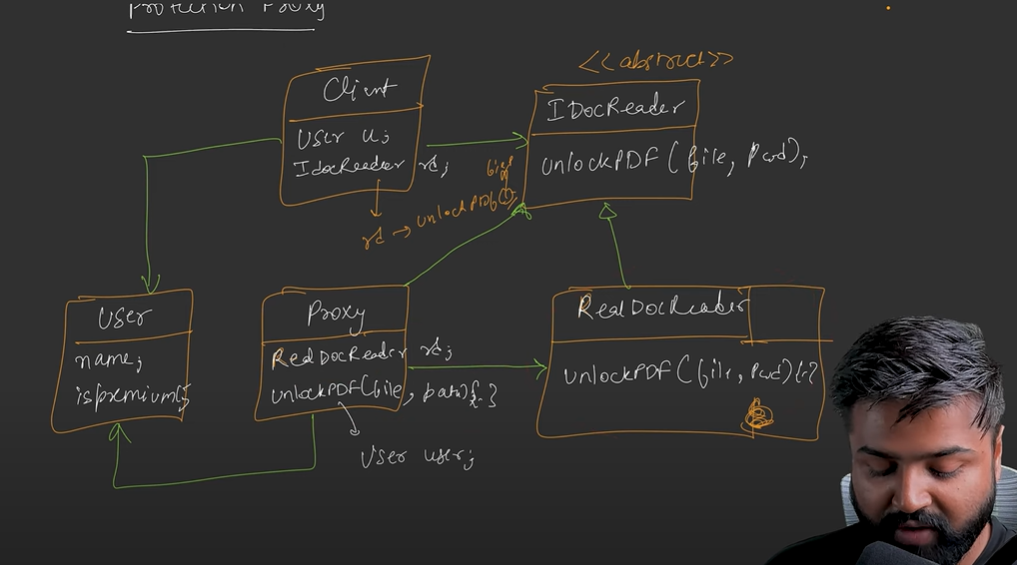 Protection Proxy
<<abstract>>
Client
User u;
IdocReader rd;
rd → unlockPDF();
IDocReader
unlockPDF (file, pwd);
User
name;
ispremium;
Proxy
RealDocReader rd;
unlockPDF(file, pwd){-}
User user;
RealDocReader
unlockPDF (file, pwd){-}